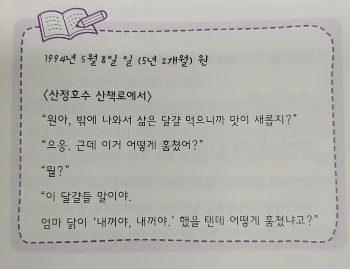 1994년 5월 8일 일 (5년 2개월) 원
<산정호수 산책로에서>
“원아, 밖에 나와서 삶은 달걀 먹으니까 맛이 새롭지?”
“으응. 근데 이거 어떻게 훔쳤어?”
“뭘?”
“이 달걀들 말이야.
엄마 닭이 ‘내꺼야, 내꺼야.’ 했을 텐데 어떻게 훔쳤냐고?”